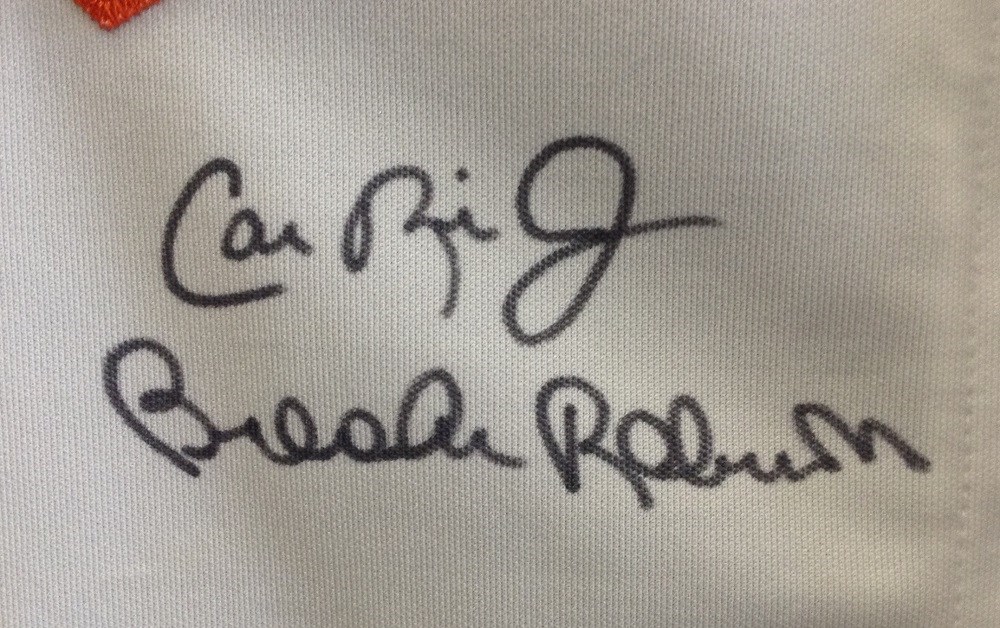 Cal Rip Jr
Brooks Robinson